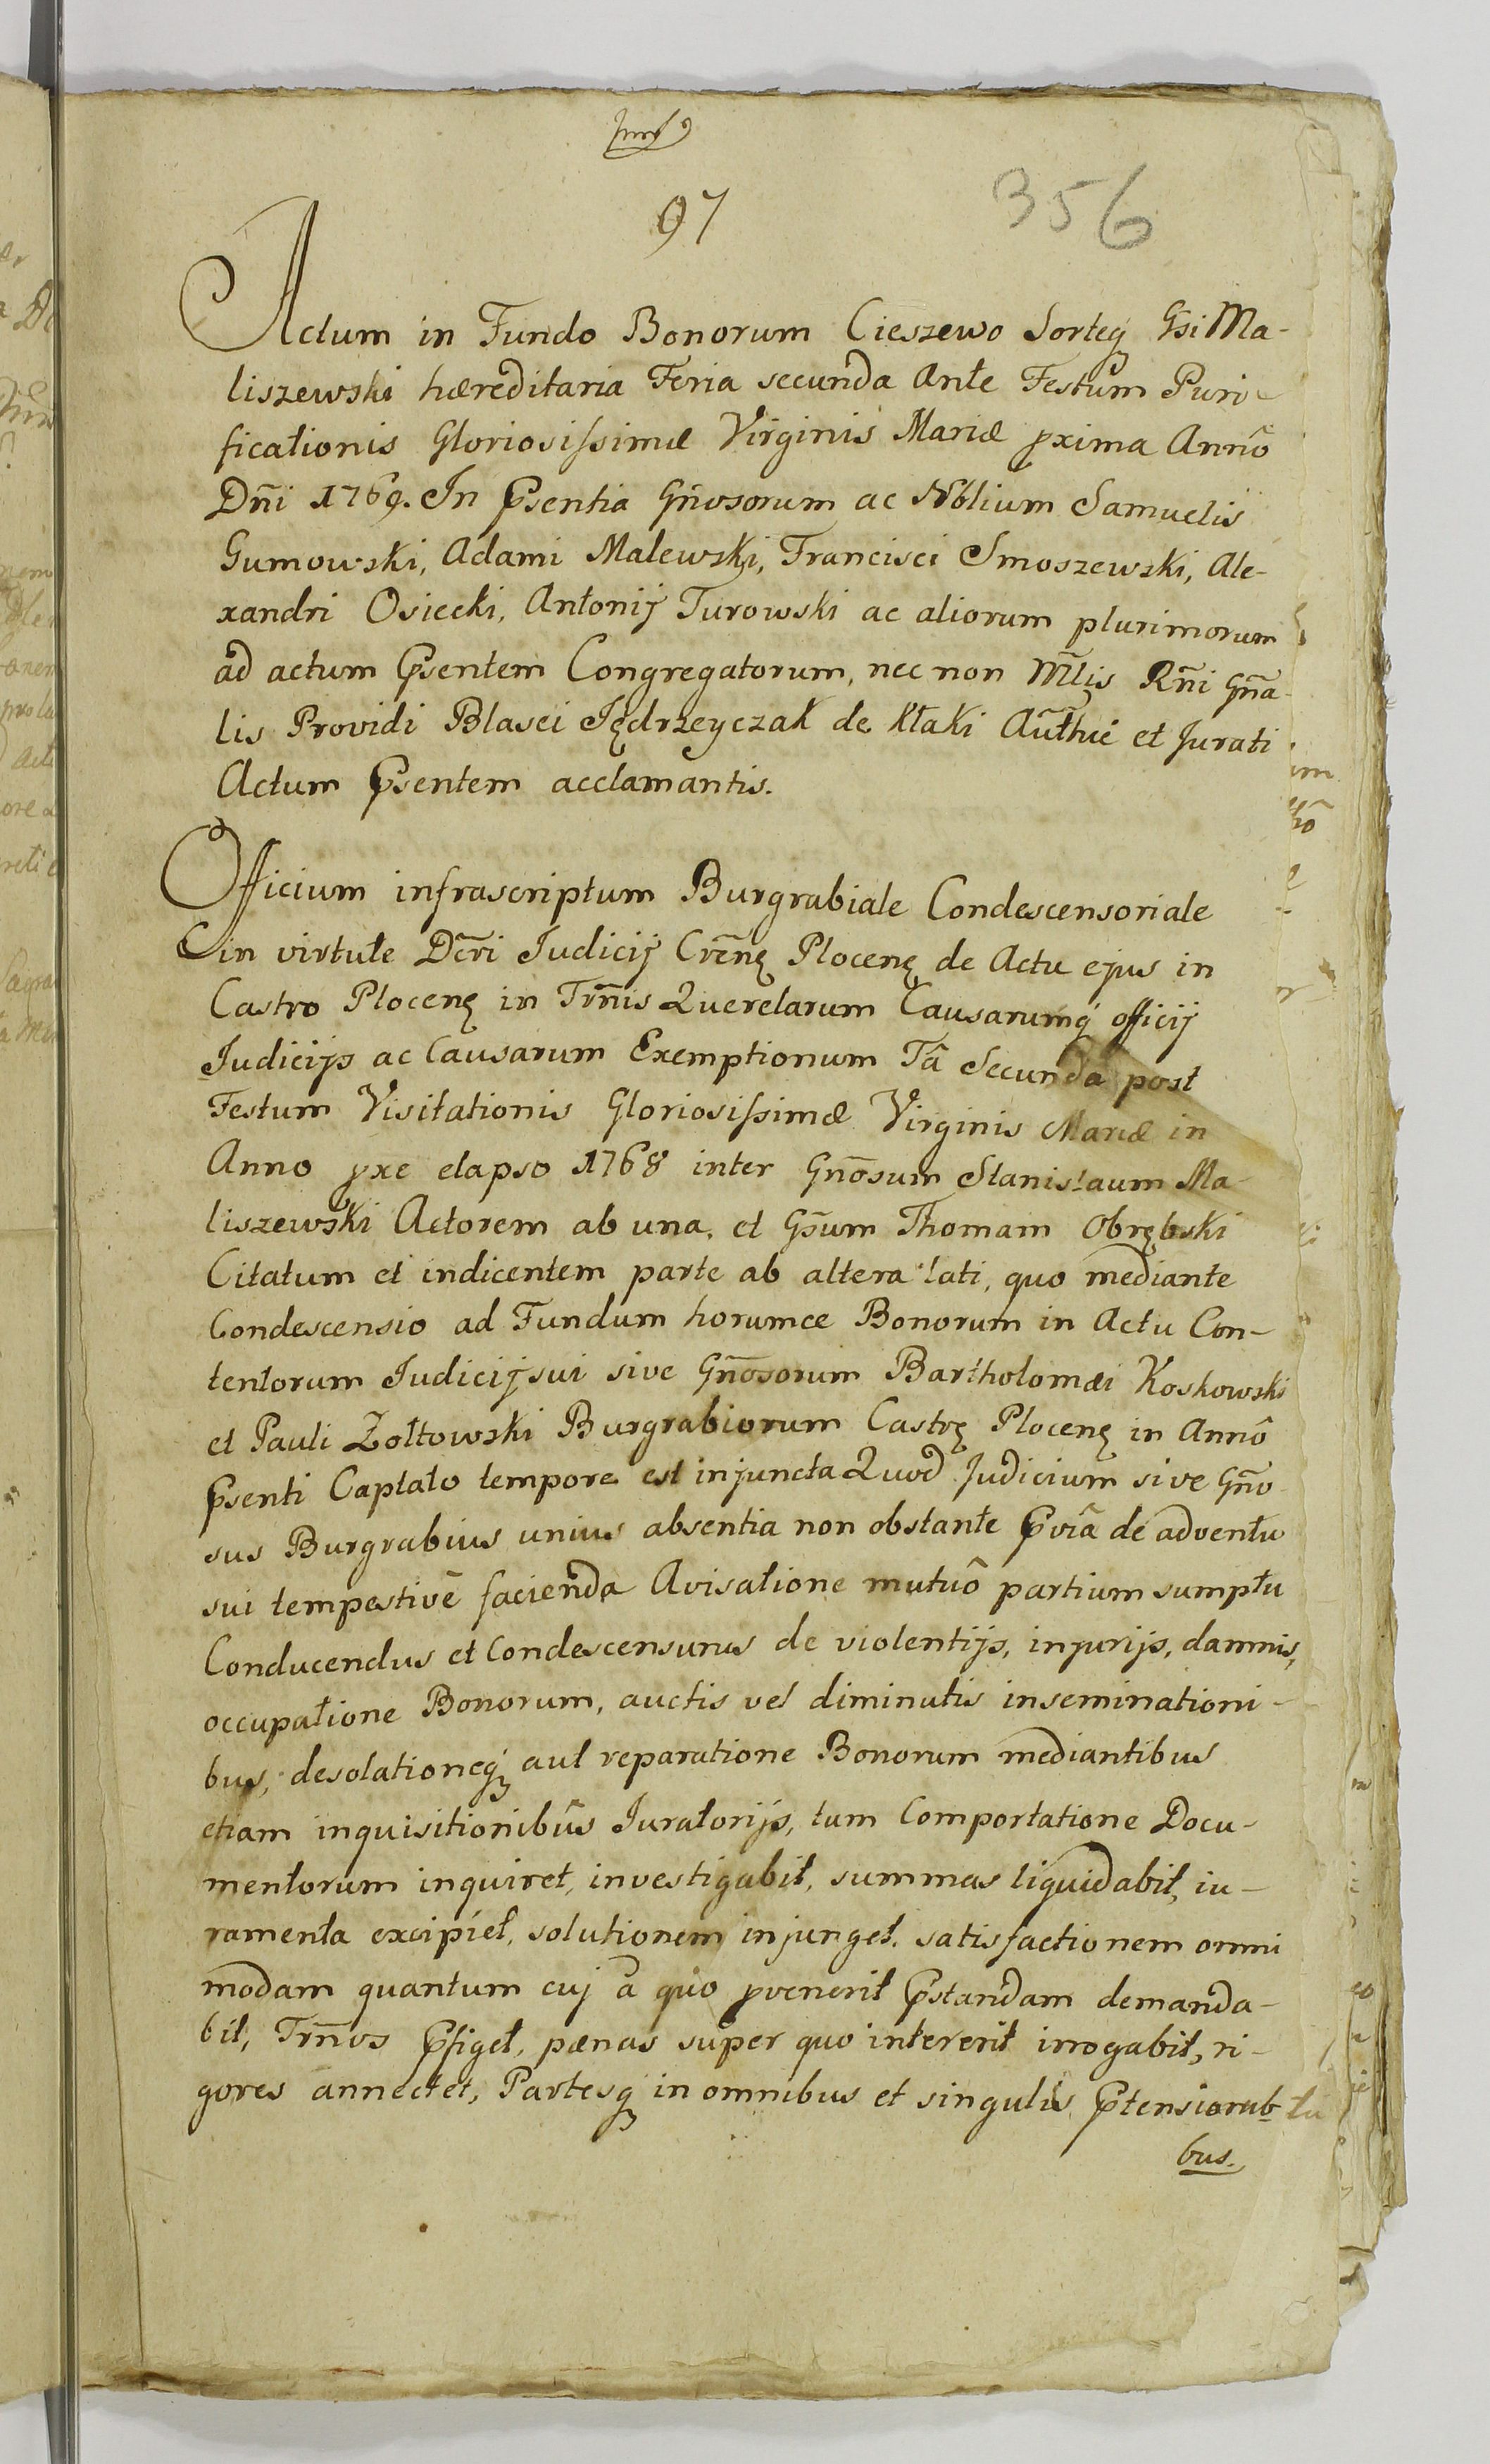 97
356
Actum in Fundo Bonorum Cieszewo Sorteq Gsi Ma-
liszewski hæreditaria Feria secunda Ante Festum Puri-
ficationis Gloriosissimæ Virginis Mariæ pxima Annô
Dñi 1769. In Psentia Gñosorum ac Nblium Samuelis
Gumowski, Adami Malewski, Francisci Smoszewski, Ale-
xandri Osiecki, Antonij Turowski ac aliorum plurimorum
ad actum Psentem Congregatorum, nec non Mtlis Rñi Gña-
lis Providi Blasei Jędrzeyczak de Kłaki Aũthci et Jurati
Actum Psentem acclamantis.
Officium infrascriptum Burgrabiale Condescensoriale
in virtute Dcri Judicij Crēnę Plocenę de Actu ejus in
Castro Plocenę in Trm̃is Querelarum Causarumq officij
Judicijs ac Causarum Exemptionum Fâ Secunda post
Festum Visitationis Gloriosissimæ Virginis Mariæ in
Anno pxe elapso 1768 inter Gnõsum Stanislaum Ma-
liszewski Actorem ab una, et Gsum Thomam Obrębski
Citatum et indicentem parte ab altera lati, quo mediante
Condescensio ad Fundum horumce Bonorum in Actu Con-
tentorum Judicij sui sive Gnõsorum Bartholomæi Koskowski
et Pauli Zołtowski Burgrabiorum Castrę Plocenę in Annô
Psenti Captato tempore est injuncta Quod Judicium sive Gño-
sus Burgrabius unius absentia non obstante Pviâ de adventu
sui tempestivè facienda Avisatione mutuô partium sumptu
Conducendus et Condescensurus de violentijs, injurijs, damnis,
occupatione Bonorum, auctis vel diminutis inseminationi-
bus, desolationeq aut reparatione Bonorum mediantibus
etiam inquisitionibus Juratorijs, tum Comportatione Docu-
mentorum inquiret, investigabit, summas liquidabit, iu-
ramenta excipiet, solutionem injunget, satisfactionem omni
modam quantum cuj â quo pvenerit Pstandam demanda-
bit, Trm̃os Pfiget, pænas super quo intererit irrogabit, ri-
gores annectet, Partesq in omnibus et singulis
bus.